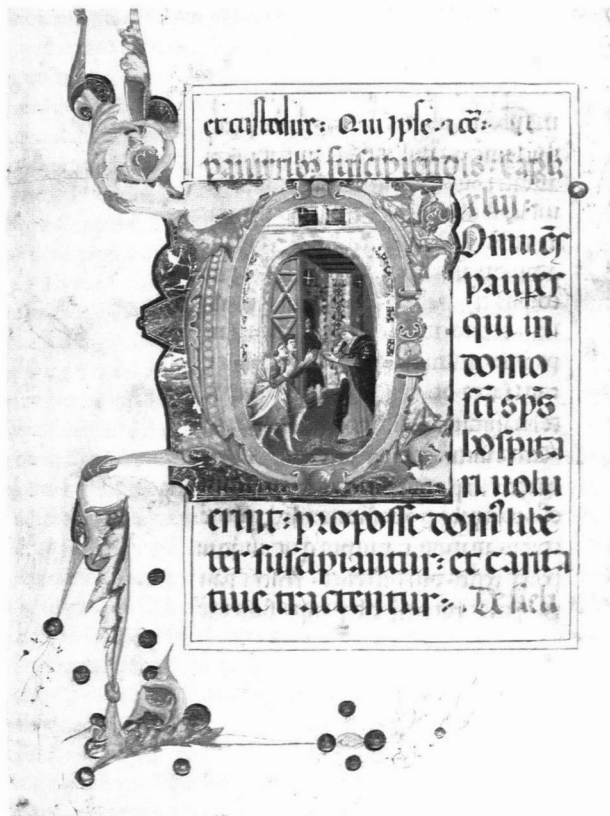 et custodire: Qui ipse ⁊ cet̄:
pauperibꝫ suscipiendis. Cap̄lm
xliii.
Om̄es
pauꝑes
qui in
domo
sc̄i sp̄s
hospita
ri uolu
erint: pro posse domꝰ libē
ter suscipiantur: et carita
tiue tractentur: De